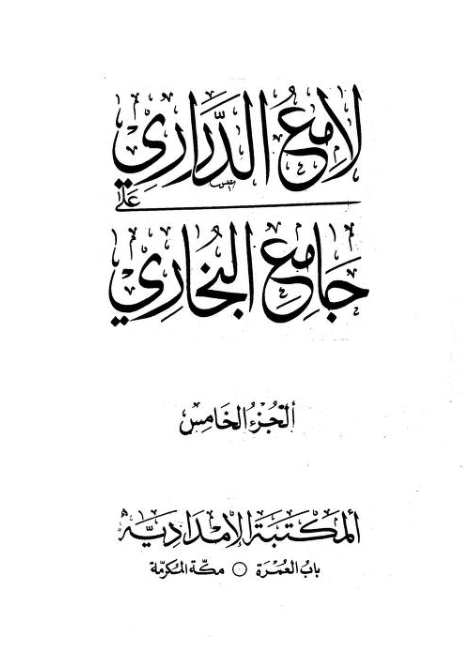 لامع الدَّراري
على
جامع البُخاري
ألجُزءُ الخَامِسْ
ألمكتَبَة الإمْدَادِيَّة
بابُ العُمْرَة ○ مكّة المُكرمّة